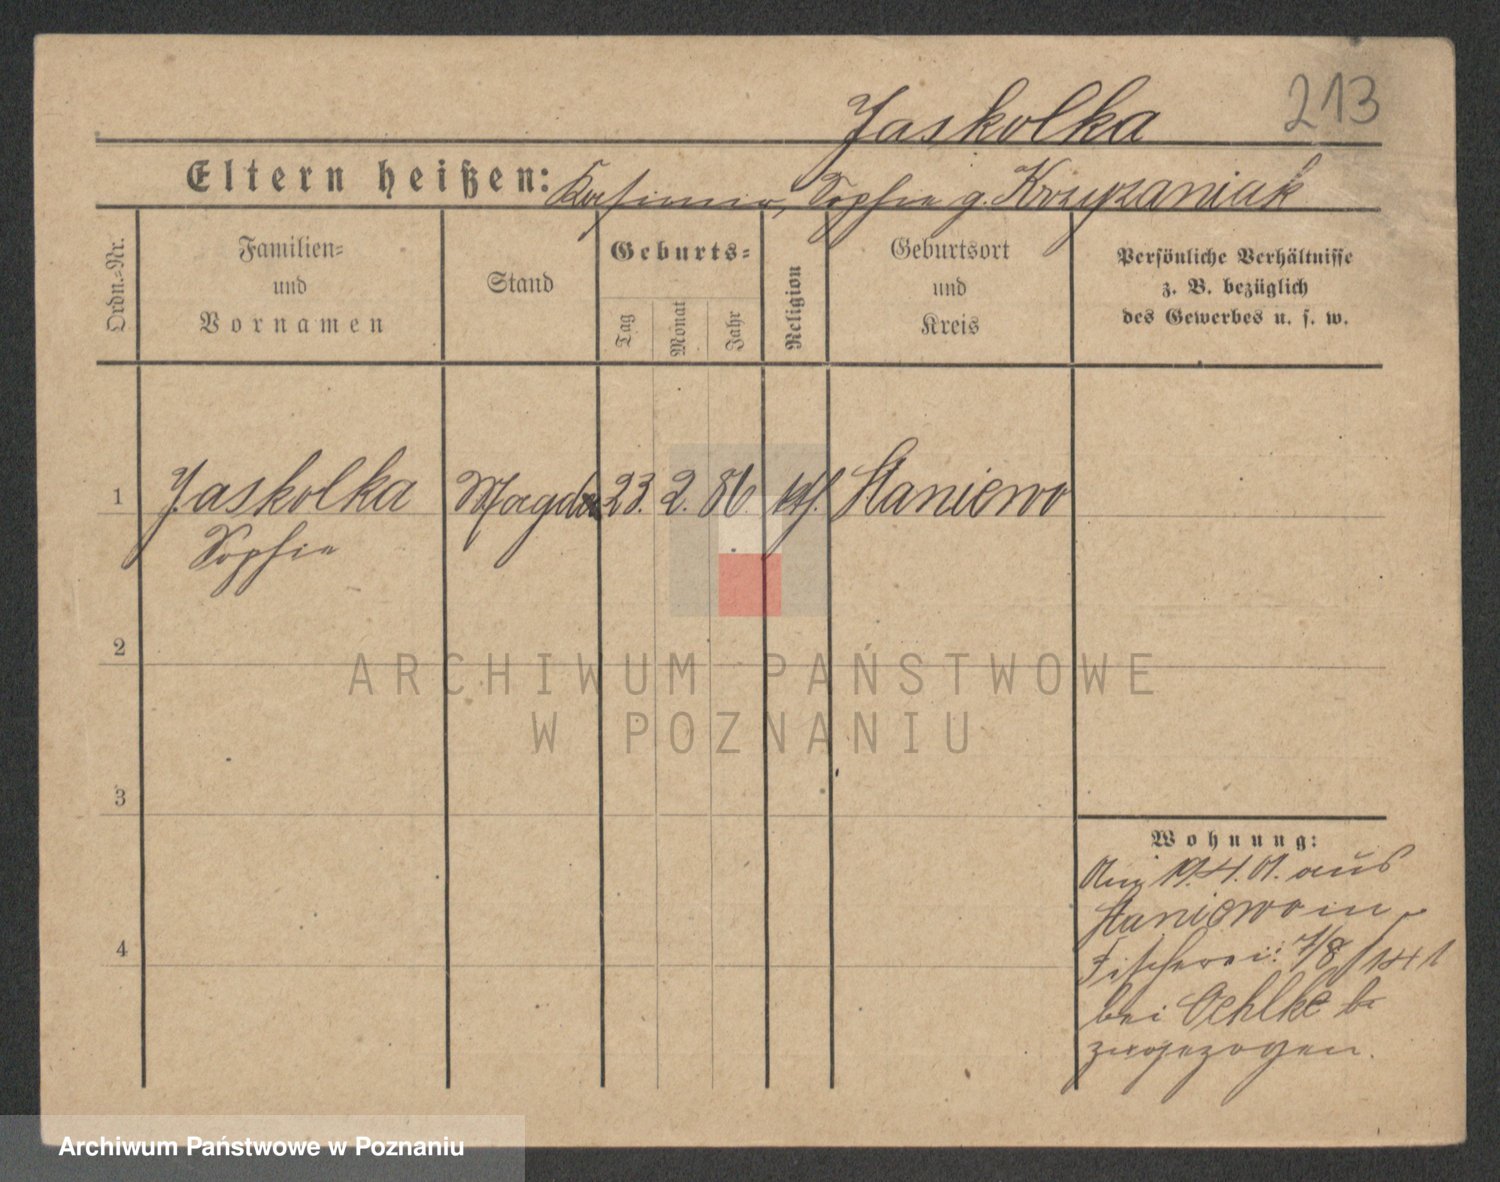 213
Jaskolka
Eltern heißen: Kasimir, Sophie g. Krzyzaniak
Ordn.-Nr.
Familien- und Vornamen
Stand
Geburts-
Tag
Monat
Jahr
Religion
Geburtsort und Kreis
Persönliche Verhältnisse
z. B. bezüglich
des Gewerbes u. s. w.
1 Jaskolka Magd 23. 2. 86. kth. Staniewo
Sophie
2
ARCHIWUM PAŃSTWOWE
W POZNANIU
3
Wohnung:
19.4.01. aus
Staniewo in
4
Fischerei: 7/8
bei Oehlke
zugezogen.
Archiwum Państwowe w Poznaniu